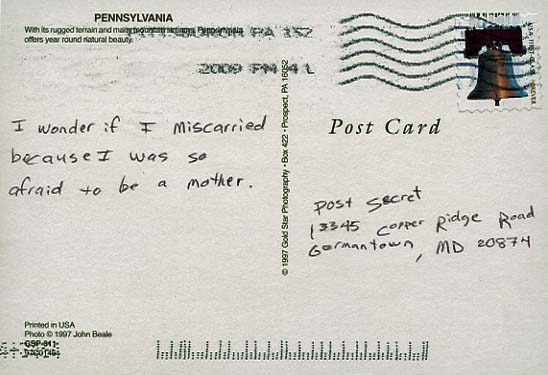 PENNSYLVANIA
With its rugged terrain and many
offers year round natural beauty.
PA 152
2009 PM 4 L
I wonder if I miscarried
because I was so
afraid to be a mother.
© 1997 Gold Star Photography • Box 422 • Prospect, PA 16052
Post Card
Post Secret
13345 Copper Ridge Road
Germantown, MD 20874
Printed in USA
Photo © 1997 John Beale
GSP-941